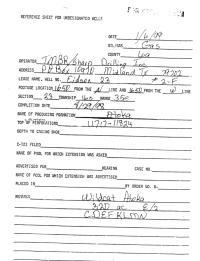 REFERENCE SHEET FOR UNDESIGNATED WELLS
DATE 1/6/99
OIL/GAS Gas
COUNTY Lea
OPERATOR TMBR/Sharp Drilling Inc
ADDRESS Midland Tx 79702
LEASE NAME, WELL NO. 23
FOOTAGE LOCATION 1650 FROM THE N LINE AND 1650 FROM THE W LINE
SECTION 23 TOWNSHIP 16S RANGE 35E
COMPLETION DATE
NAME OF PRODUCING FORMATION Atoka
TOP OF PERFORATIONS
DEPTH TO CASING SHOE
C-123 FILED
NAME OF POOL FOR WHICH EXTENSION WAS ASKED
ADVERTISED FOR HEARING CASE NO.
NAME OF POOL FOR WHICH EXTENSION WAS ADVERTISED
PLACED IN BY ORDER NO. R-
REMARKS Wildcat Atoka
320 ac
CDEFKLMN